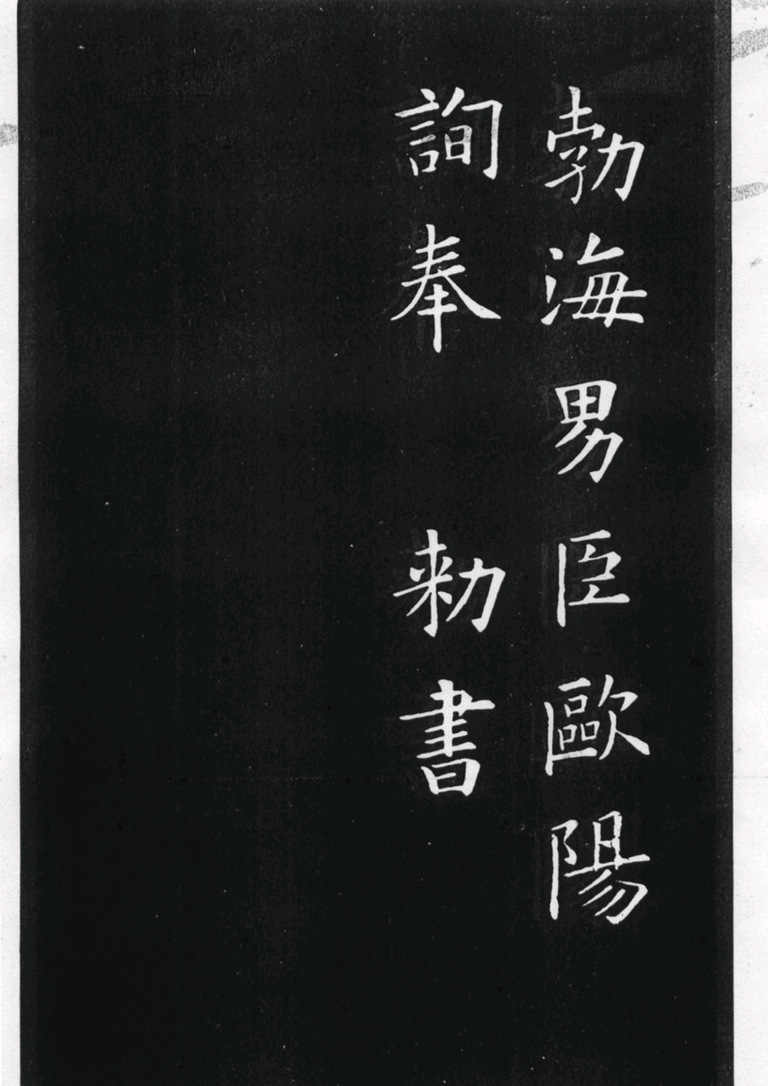 勃海男臣歐陽
詢奉 勑書